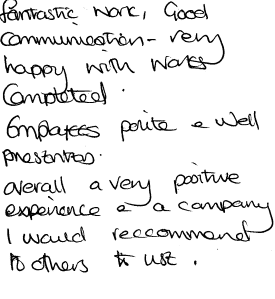 fantastic work, Good
communication - very
happy with works
Completed.
Employees polite & well
presented.
overall a very positive
experience & a company
I would reccommend
to others to use.